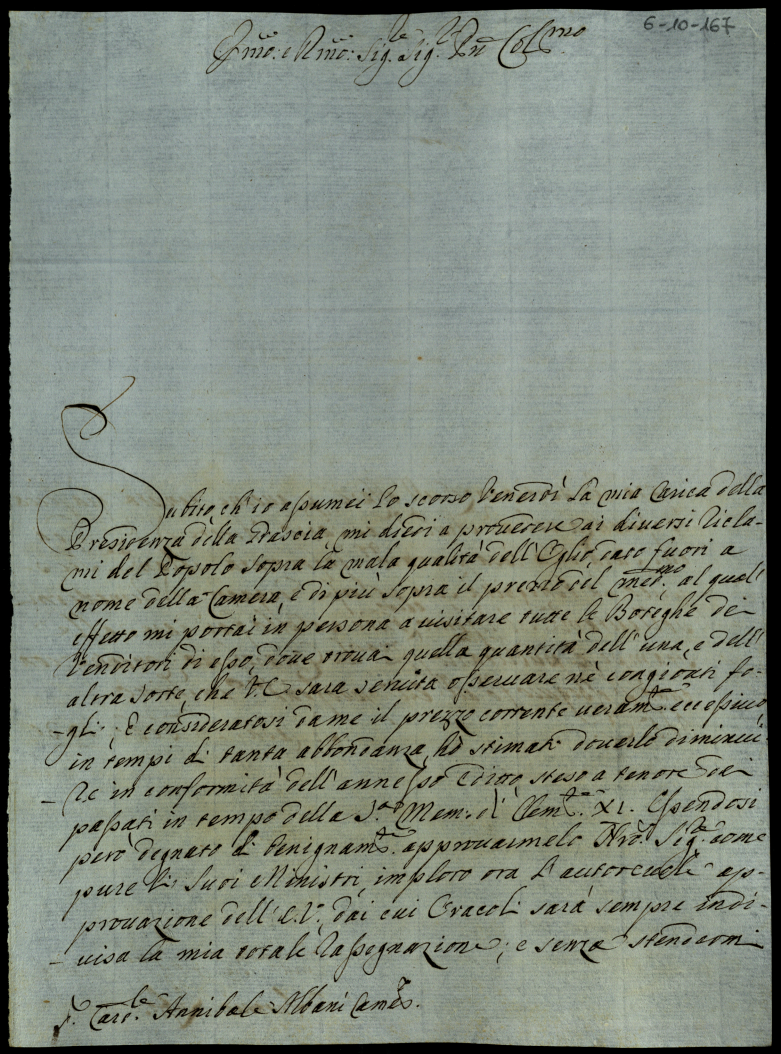 6-10-167
Em̃o. e Rm̃o. Sig.re Sig.r Pñe Col.mo
Subito ch'io assumei lo scorso Venerdì la mia Carica della
Presidenza della Grascia mi diedi a provedere ai diversi recla-
mi del Popolo sopra la mala qualità dell'Oglio, dato fuori a
nome della Camera, e di più sopra il prezzo del med.mo, al quall'
effetto mi portai in persona a visitare tutte le Boteghe de
Venditori di esso, dove trovai quella quantità dell'una, e dell'
altra sorte, che V.E. sarà servita osservare nè congionti fo-
gli; E consideratosi da me il prezzo corrente veram.te eccessivo
in tempi di tanta abbondanza, hò stimato doverlo diminui-
re in conformità dell'annesso Editto steso a tenore dei
passati in tempo della S.a Mem. di Clem.te XI. Essendosi
però degnato di benignam.te approvarmelo Nro Sig.re come
pure li Suoi Ministri, imploro ora l'autorevole ap-
provazione dell'E.V. dai cui Oracoli sarà sempre indi-
visa la mia totale rassegnazione; e senza stendermi
S.r Card.le Annibale Albani Cam.